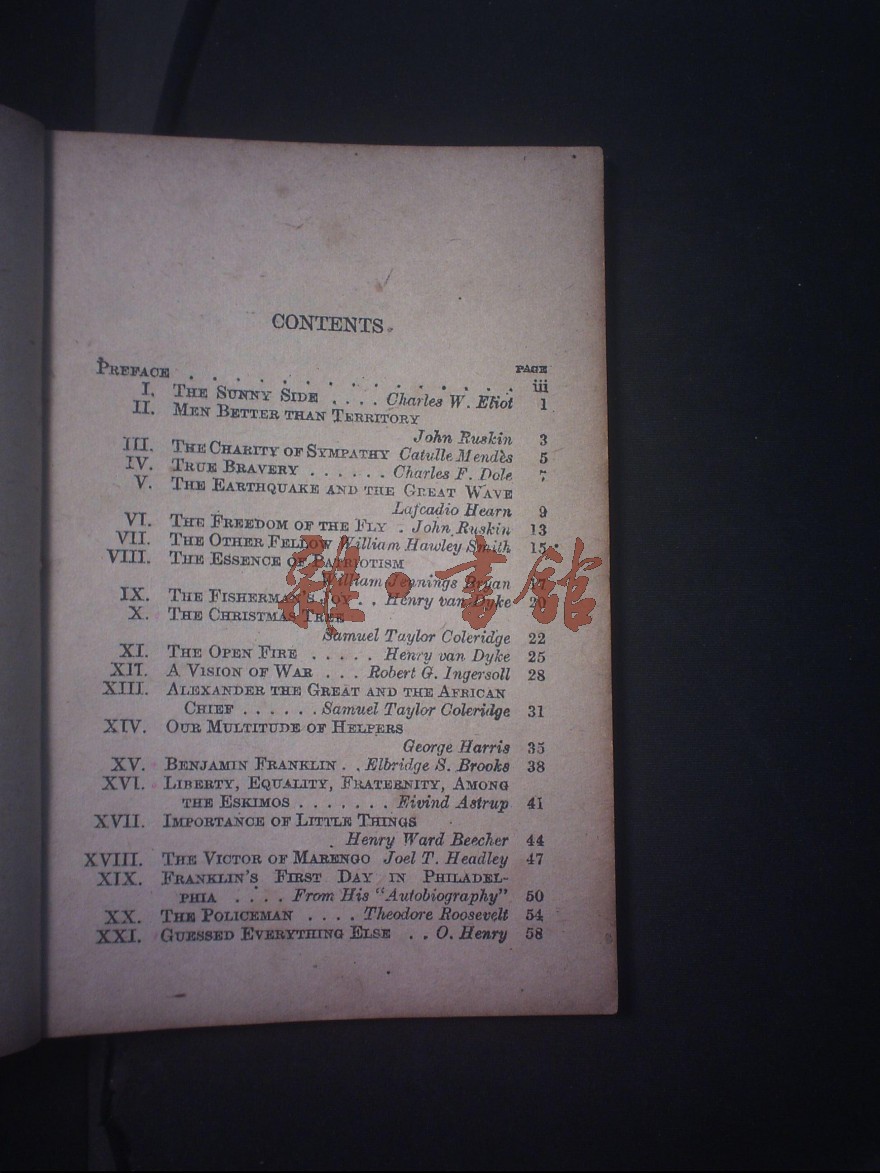 CONTENTS
PAGE
PREFACE . . . . . . . . . . . . . . . iii
I. THE SUNNY SIDE . . . . Charles W. Eliot 1
II. MEN BETTER THAN TERRITORY
John Ruskin 3
III. THE CHARITY OF SYMPATHY Catulle Mendès 5
IV. TRUE BRAVERY . . . . . . Charles F. Dole 7
V. THE EARTHQUAKE AND THE GREAT WAVE
Lafcadio Hearn 9
VI. THE FREEDOM OF THE FLY . John Ruskin 13
VII. THE OTHER FELLOW William Hawley Smith 15
VIII. THE ESSENCE OF PATRIOTISM
William Jennings Bryan 17
IX. THE FISHERMAN'S JOY . . Henry van Dyke 20
X. THE CHRISTMAS TREE
Samuel Taylor Coleridge 22
XI. THE OPEN FIRE . . . . . Henry van Dyke 25
XII. A VISION OF WAR . . . Robert G. Ingersoll 28
XIII. ALEXANDER THE GREAT AND THE AFRICAN
CHIEF . . . . . . Samuel Taylor Coleridge 31
XIV. OUR MULTITUDE OF HELPERS
George Harris 35
XV. BENJAMIN FRANKLIN . . Elbridge S. Brooks 38
XVI. LIBERTY, EQUALITY, FRATERNITY, AMONG
THE ESKIMOS . . . . . . . Eivind Astrup 41
XVII. IMPORTANCE OF LITTLE THINGS
Henry Ward Beecher 44
XVIII. THE VICTOR OF MARENGO Joel T. Headley 47
XIX. FRANKLIN'S FIRST DAY IN PHILADEL-
PHIA . . . . From His "Autobiography" 50
XX. THE POLICEMAN . . . . Theodore Roosevelt 54
XXI. GUESSED EVERYTHING ELSE . . O. Henry 58
雜·書館